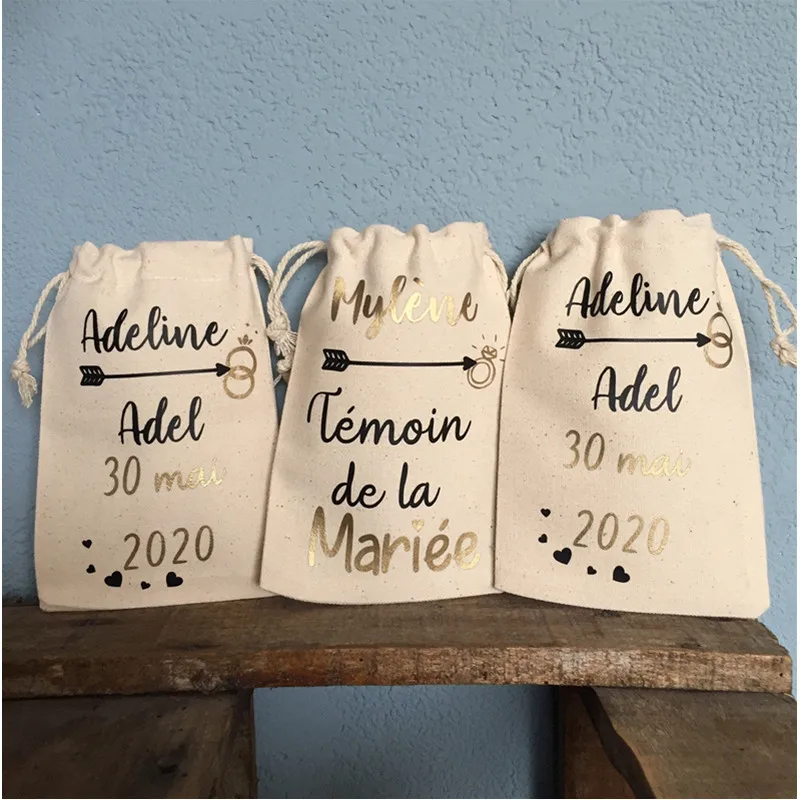 Adeline
Adel
30 mai
2020
Mylène
Témoin
de la
Mariée
Adeline
Adel
30 mai
2020